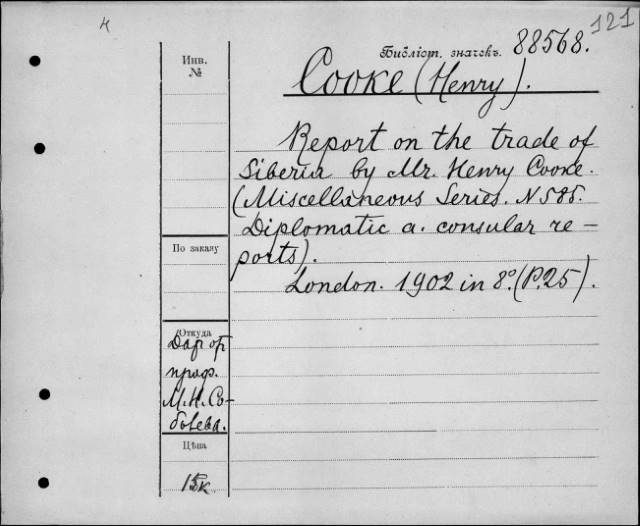 4
121
Библіот. значекъ. 88568.
Инв.
№
Cooke (Henry).
Report on the trade of
Siberia by Mr. Henry Cooke.
(Miscellaneous Series. N 585.
Diplomatic a. consular re-
ports).
London. 1902 in 8°. (P. 25).
По заказу
Откуда
Дар ор
проф.
М. Н. Со-
болева.
Цѣна
15к